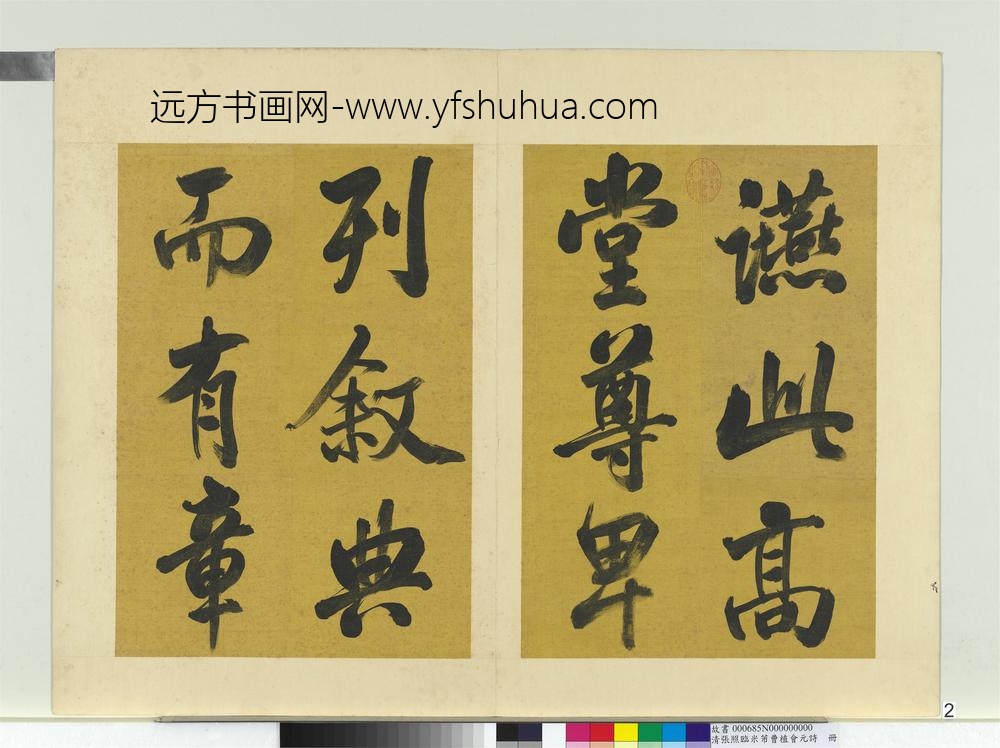 远方书画网-www.yfshuhua.com
讌此高
堂尊卑
列叙典
而有章
2
故書 000685N000000000
清張照臨米芾曹植會元詩 冊